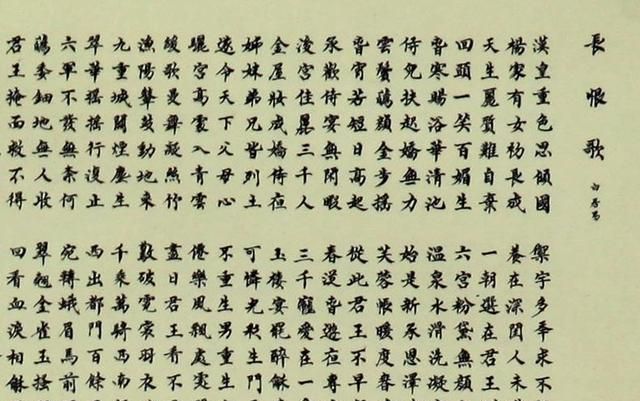 長恨歌 白居易
漢皇重色思傾國
楊家有女初長成
天生麗質難自棄
回頭一笑百媚生
春寒賜浴華清池
侍兒扶起嬌無力
雲鬢蘤顏金步搖
春宵苦短日高起
承歡侍宴無閑暇
後宮佳麗三千人
金屋妝成嬌侍夜
姊妹弟兄皆列土
遂令天下父母心
驪宮高處入青雲
緩歌曼舞凝絲竹
漁陽鼙鼓動地來
九重城闕煙塵生
翠華搖搖行復止
六軍不發無奈何
蘤委鈿地無人收
君王掩面救不得
御宇多年求不
養在深閨人未
一朝選在君王
六宮粉黛無顏
溫泉水滑洗凝
始是新承恩澤
芙蓉帳暖度春
從此君王不早
春從春遊夜專
三千寵愛在一
玉樓宴罷醉龢
可憐光彩生門
不重生男重生
僊樂風飄處處
盡日君王看不
驚破霓裳羽衣
千乘萬騎西南
西出都門百餘
宛轉蛾眉馬前
翠翹金雀玉搔
回看血淚相龢